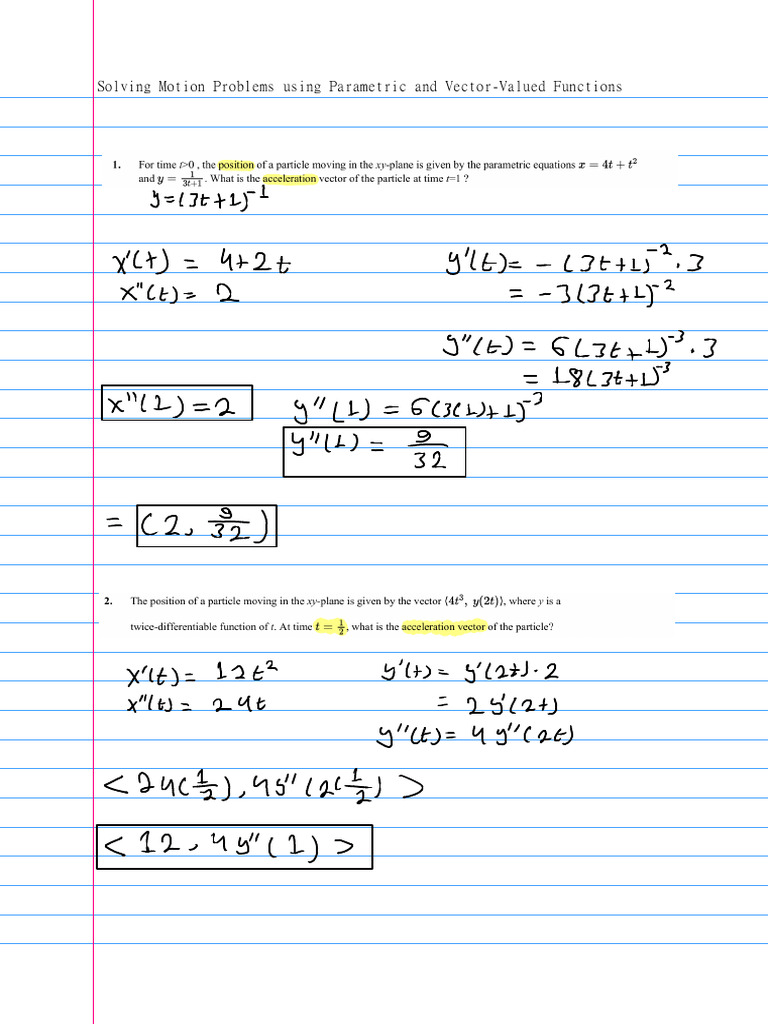 Solving Motion Problems using Parametric and Vector-Valued Functions
1. For time t>0 , the position of a particle moving in the xy-plane is given by the parametric equations x = 4t + t²
and y = 1/(3t+1) . What is the acceleration vector of the particle at time t=1 ?
y=(3t+1)⁻¹
x'(t) = 4+2t
y'(t)= -(3t+1)⁻²·3
x''(t)= 2
= -3(3t+1)⁻²
y''(t) = 6(3t+1)⁻³·3
= 18(3t+1)⁻³
x''(1)=2
y''(1) = 6(3(1)+1)⁻³
y''(1) = 9/32
= (2, 9/32)
2. The position of a particle moving in the xy-plane is given by the vector ⟨4t³, y(2t)⟩, where y is a
twice-differentiable function of t. At time t = 1/2, what is the acceleration vector of the particle?
x'(t) = 12t²
y'(t) = y'(2t)·2
x''(t) = 24t
= 2y'(2t)
y''(t)= 4y''(2t)
<24(1/2), 4y''(2(1/2)>
<12, 4y''(1)>